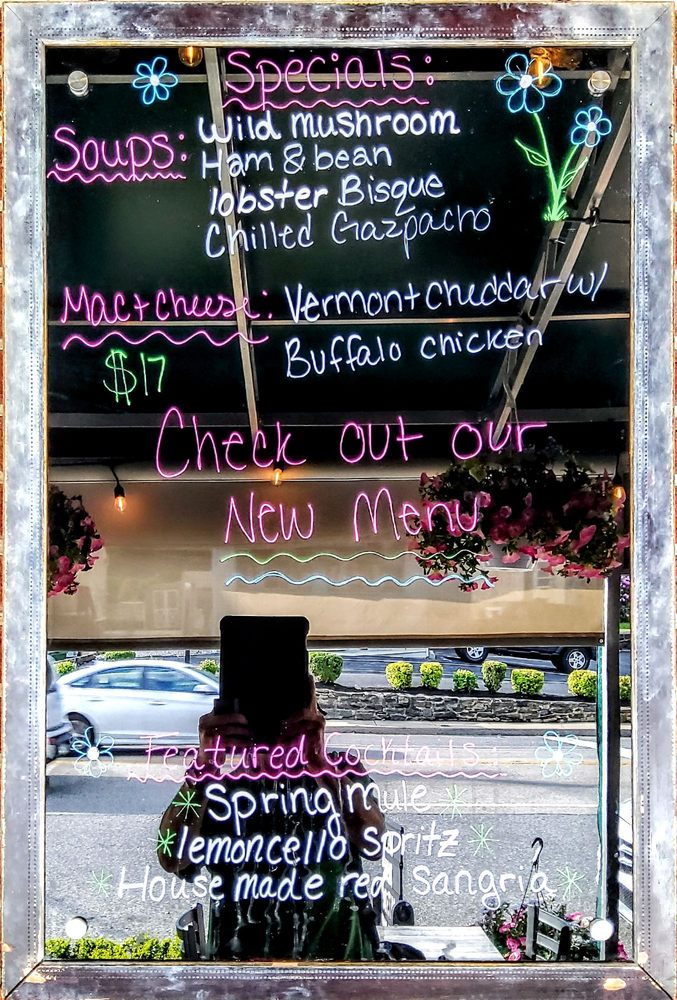 Specials:
Soups: Wild mushroom
Ham & bean
lobster Bisque
Chilled Gazpacho
Mac + cheese: Vermont cheddar w/
$17 Buffalo chicken
Check out our
New Menu
Featured Cocktails:
Spring mule
lemoncello Spritz
House made red Sangria